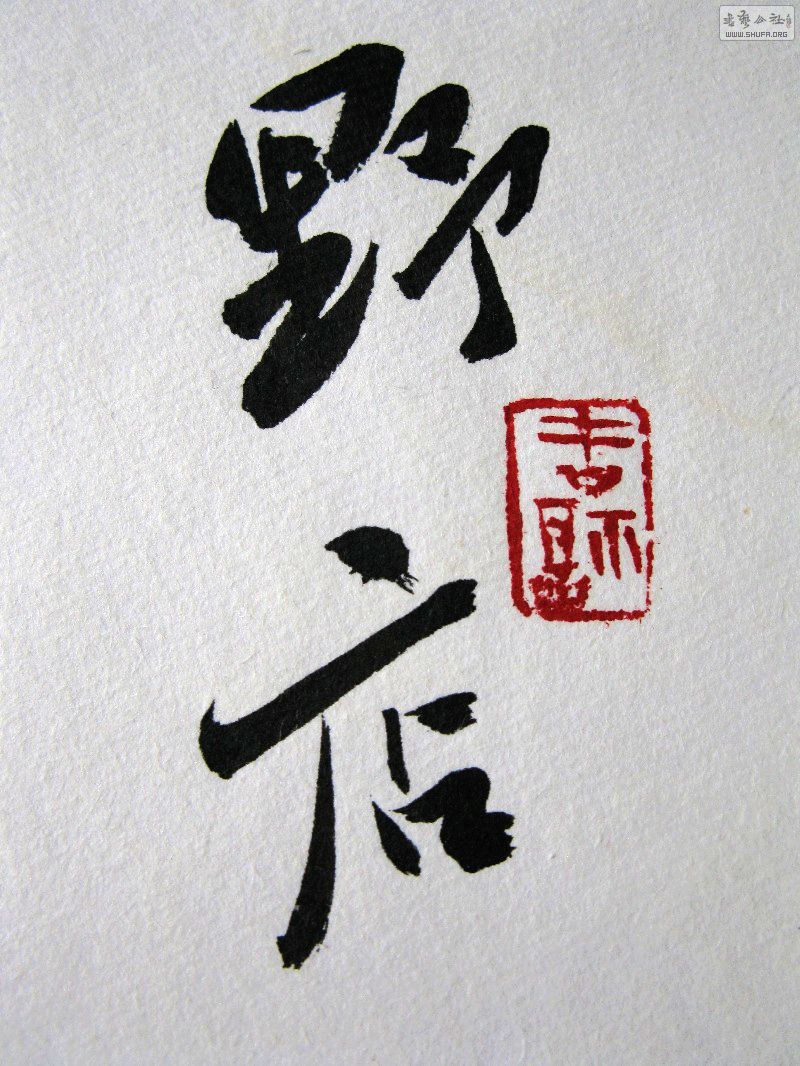 野店
书艺公社
WWW.SHUFA.ORG